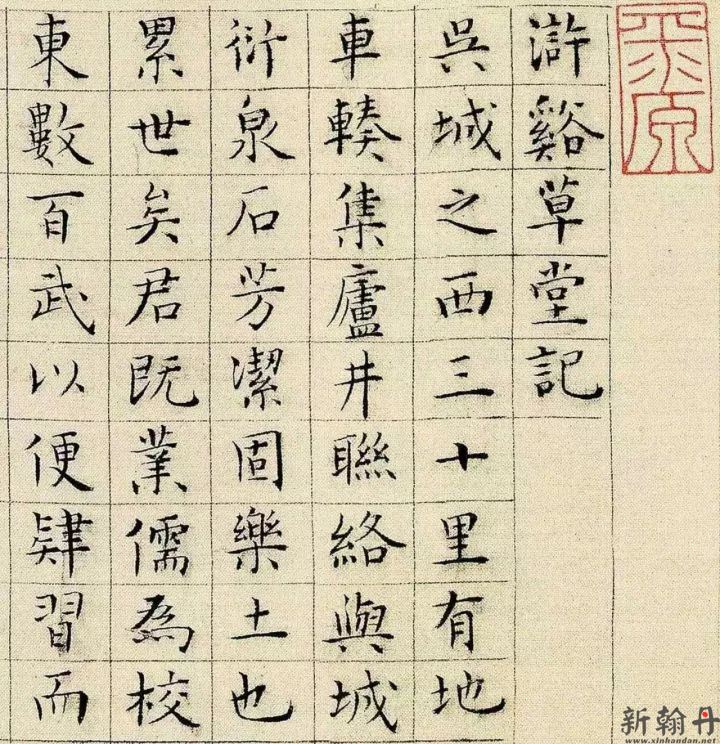 平原
滸谿草堂記
吳城之西三十里有地
車輳集廬井聯絡與城
衍泉石芳潔固樂土也
累世矣君既業儒為校
東數百武以便肄習而
新翰丹
www.xinhandan.net